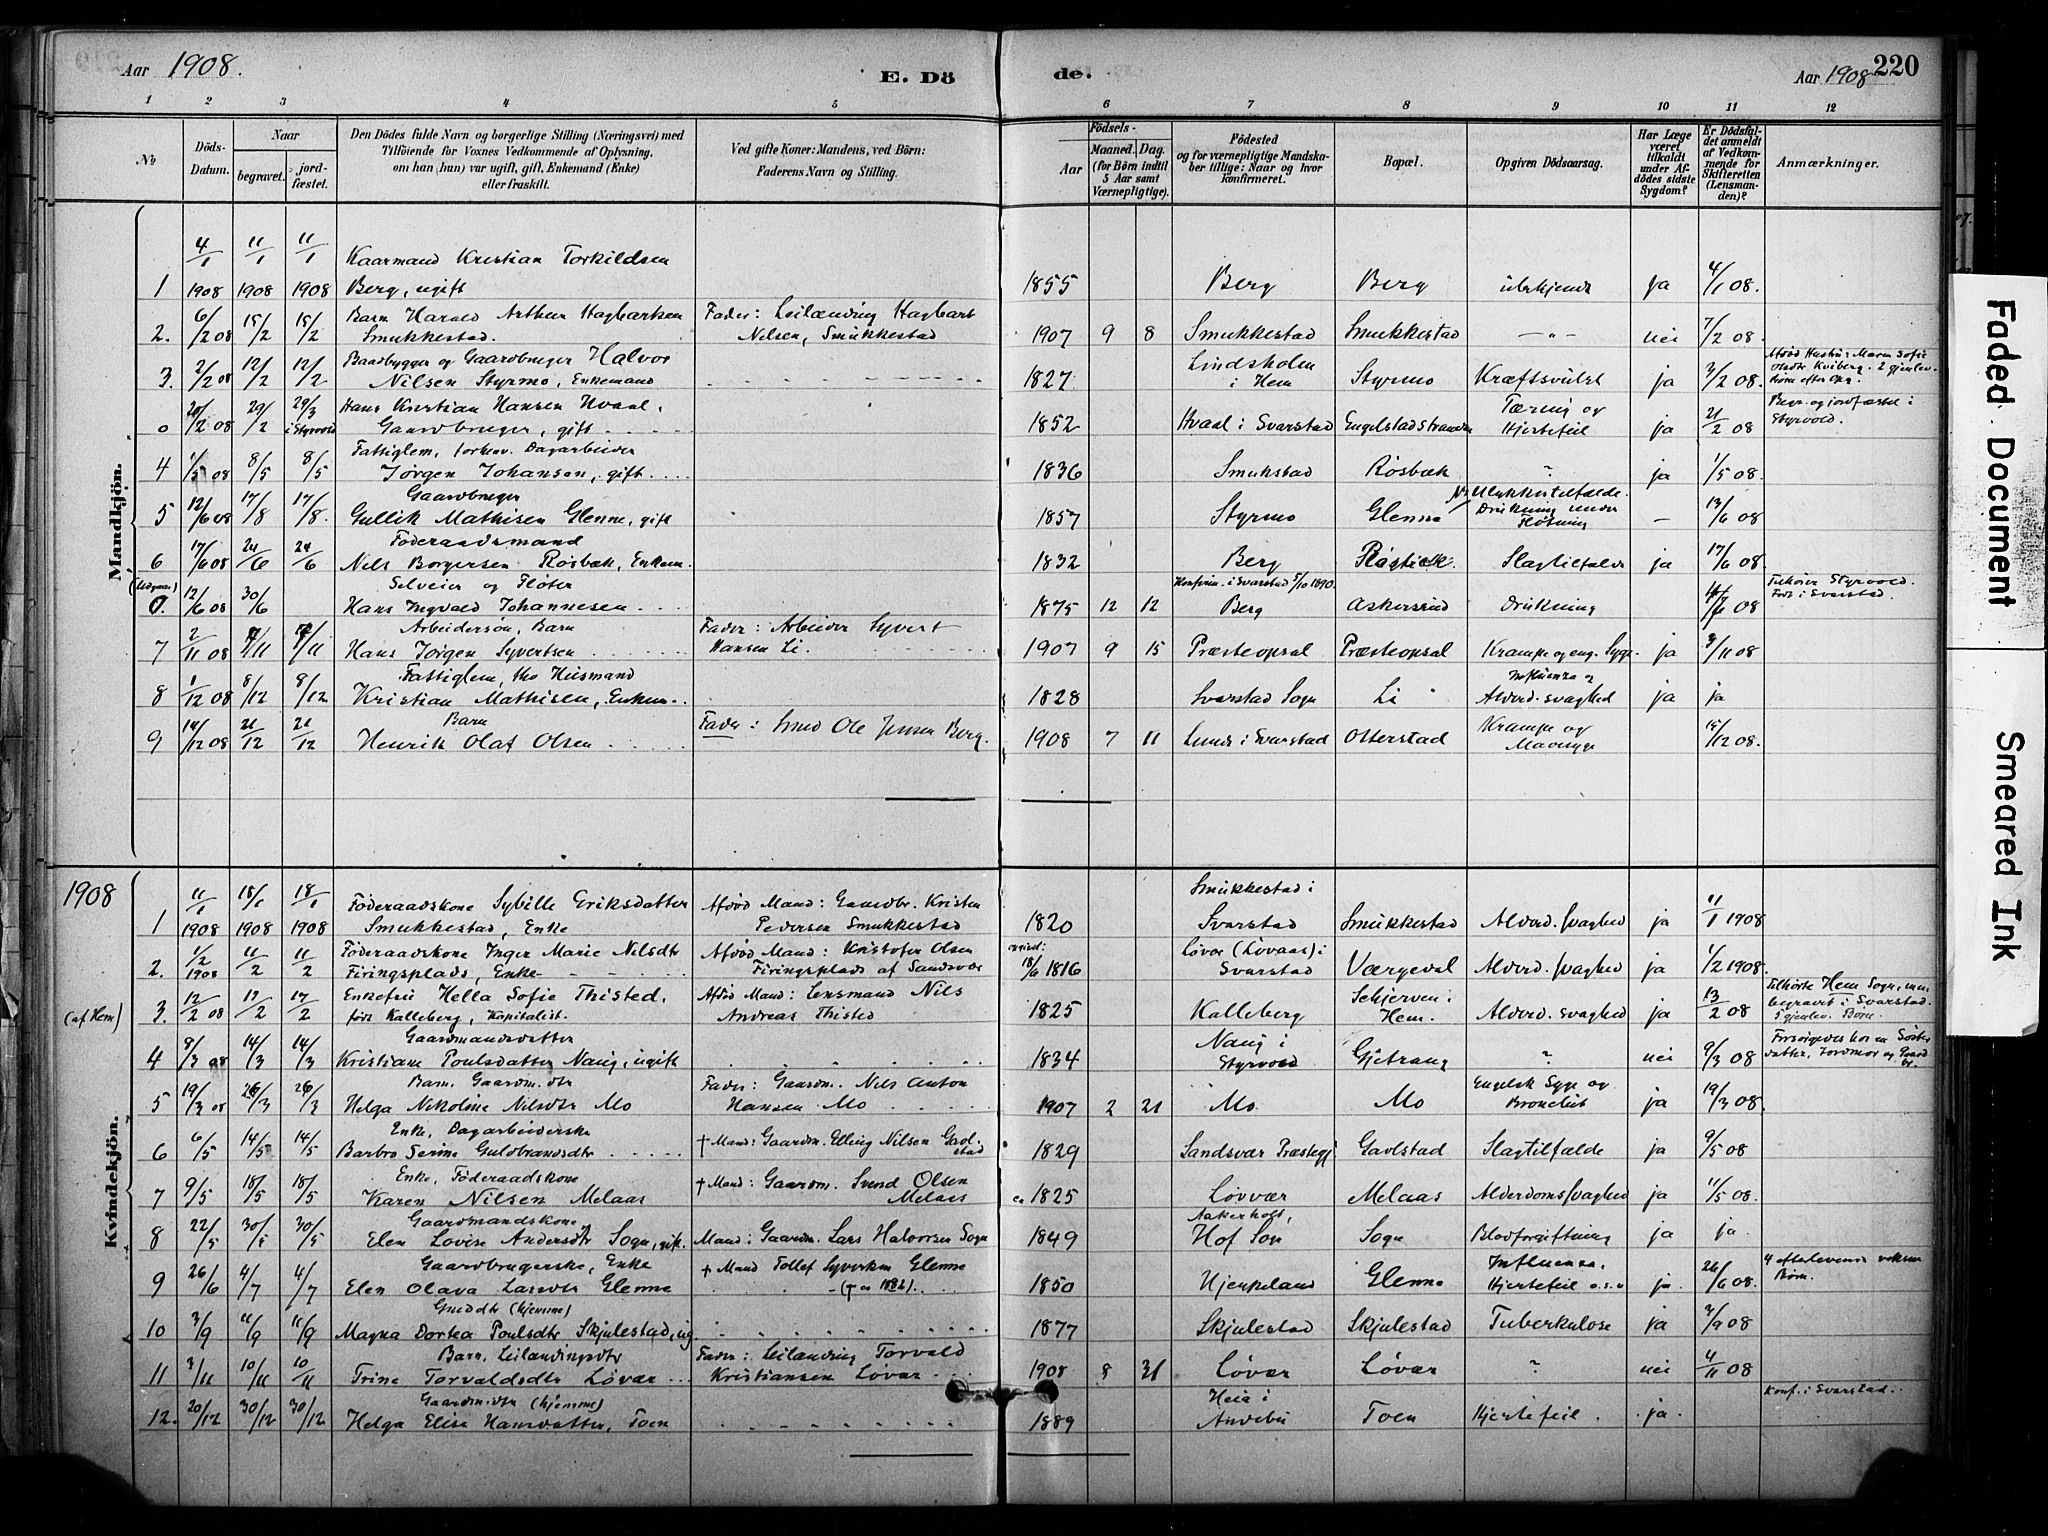 Aar 1908. E. Dö de. Aar 1908 220
1 2 3 4 5 6 7 8 9 10 11 12
No Döds-Datum. Naar begravet. jordfæstet. Den Dödes fulde Navn og borgerlige Stilling (Næringsvei) med Tilföiende for Voxnes Vedkommende af Oplysning, om han (hun) var ugift, gift, Enkemand (Enke) eller fraskilt. Ved gifte Koner: Mandens, ved Börn: Faderens Navn og Stilling. Födsels- Aar Maaned. Dag. (for Börn indtil 5 Aar samt Værnepligtige). Födested og for værnepligtige Mandskaber tillige: Naar og hvor konfirmeret. Bopæl. Opgiven Dödsaarsag. Har Læge været tilkaldt under Afdödes sidste Sygdom? Er Dödsfaldet anmeldt af Vedkommende for Skifteretten (Lensmanden)? Anmærkninger.
Mandkjön.
4/1 11/1 11/1 Kaarmand Kristian Torkildsen
1 1908 1908 1908 Berg, ugift 1855 Berg Berg ubekjendt ja 4/1 08.
6/2 08 15/2 15/2 Barn Harald Arthur Hagbartsen Fader: Leilænding Hagbart
2. Smukkestad. Nilsen, Smukkestad 1907 9 8 Smukkestad Smukkestad -"- nei 7/2 08.
2/2 08 12/2 12/2 Baadbygger og Gaardbruger Halvor Lindsholm Afdød Hustru: Maren Sofie
3. Nilsen Styrmo, Enkemand 1827 i Hem Styrmo Kræftsvulst ja 3/2 08.
20/2 08 29/2 29/3 Hans Kristian Hansen Hvaal. Tæring og Begr. og jordfæstet i
0 i Styrvold Gaardbruger, gift 1852 Hvaal i Svarstad Engelstadstranden Hjertefeil ja 21/2 08 Styrvold.
Fattiglem, forhenv. Dagarbeider
4 1/5 08 8/5 8/5 Jørgen Johansen, gift 1836 Smukstad Røsbæk " ja 1/5 08
Gaardbruger Ulykkestilfælde.
5 12/6 08 17/8 17/8. Gullik Mathisen Glenne, gift 1857 Styrmo Glenne Drukning under Fløtning — 13/6 08
Föderaadsmand
6 17/6 08 24/6 24/6 Nils Borgersen Røsbæk, Enkem. 1832 Berg Røsbæk Slagtilfælde ja 17/6 08
Selveier og Fløter Konfirm. i Svarstad 5/10 1890. Tilhører Styrvold.
0. 12/6 08 30/6 Hans Ingvald Johannesen 1875 12 12 Berg Askersrud Drukning 6 08 Født i Svarstad.
Arbeidersøn, Barn Fader: Arbeider Syvert
7 2/11 08 Hans Jørgen Syvertsen Hansen Li. 1907 9 15 Præsteopsal Præsteopsal Krampe og eng. Syge. ja 3/11 08
Fattiglem, Husmand Influenza og
8 1/12 08 8/12 8/12 Kristian Mathisen, Enkem. 1828 Svarstad Sogn Li Alderd. svaghed ja ja
Barn Fader: Smed Ole Jensen Berg. Krampe og
9 14/12 08 21/12 21/12 Henrik Olaf Olsen 1908 7 11 Lunde i Svarstad Otterstad Mavesyge 15/12 08.
1908
Kvindekjön.
11/1 18/1 18/1 Föderaadskone Sybille Eriksdatter Afdød Mand: Gaardbr. Kristen Smukkestad i
1 1908 1908 1908 Smukkestad, Enke Pedersen Smukkestad 1820 Svarstad Smukkestad Alderd. svaghed ja 11/1 1908
1/2 11/2 11/2 Föderaadskone Inger Marie Nilsdtr Afdød Mand: Kristofer Olsen Løvar (Løvaas) i
2. 1908 Firingsplads, Enke Firingsplads af Sandsvær 18/6 1816 Svarstad Værgeval Alderd. svaghed ja 1/2 1908.
12/2 08 17/2 17/2 Enkefru Hella Sofie Thisted, Afdød Mand: Lensmand Nils Schjerven i Tilhørte Hem Sogn, men
(af Hem) 3. født Kalleberg, Kapitalist. Andreas Thisted 1825 Kalleberg Hem. Alderd. svaghed ja 13/2 08 begravet i Svarstad. 5 gjenlev. Børn.
Gaardmandsdatter Naug i Forsørgedes hos en Søster
4 9/3 08 14/3 14/3 Kristiane Poulsdatter Naug, ugift 1834 Styrvold Gjetrang " nei 9/3 08 datter, Jordmor og Gaard
Barn, Gaardm. dtr Fader: Gaardm. Nils Anton Engelsk Syge og
5 19/3 08 26/3 26/3 Helga Nikoline Nilsdtr Mo Hansen Mo 1907 2 21 Mo Mo Bronchit ja 19/3 08.
Enke, Dagarbeiderske † Mand: Gaardm. Elling Nilsen Gavlstad
6 6/5 14/5 14/5 Barbro Serine Guldbrandsdtr 1829 Sandsvær Præstegj Gavlstad Slagtilfælde ja 9/5 08
Enke, Föderaadskone † Mand: Gaardm. Svend Olsen
7 9/5 18/5 18/5 Karen Nilsen Melaas Melaas ca 1825 Løvvær Melaas Alderdomssvaghed ja 11/5 08.
Gaardmandskone, Aakerholt,
8 22/5 30/5 30/5 Elen Lovise Andersdtr Sogn, gift. Mand: Gaardm. Lars Halvorsen Sogn 1849 Hof Sogn Sogn Blodforgiftning ja ja
Gaardbrugerske, Enke † Mand Tollef Syversen Glenne Influenza. 4 efterlevende voksne
9 26/6 4/7 4/7 Elen Olava Larsdtr Glenne († ca 1882). 1850 Hjerpeland Glenne Hjertefeil o.s.v ja 26/6 08. Børn.
Gmddtr (hjemme)
10 3/9 11/9 11/9 Magna Dortea Poulsdtr Skjulestad, ug 1877 Skjulestad Skjulestad Tuberkulose ja 3/9 08
Barn, Leilændingsdtr Fader: Leilænding Torvald
11 3/11 10/11 10/11 Trine Torvaldsdtr Løvar Kristiansen Løvar 1908 8 31 Løvar Løvar " nei 4/11 08
Gaardm. dtr (hjemme) Heia i Konf. i Svarstad.
12. 20/12 30/12 30/12 Helga Elise Hansdatter, Toen 1889 Andebu Toen Hjertefeil. ja.
Faded Document
Smeared Ink